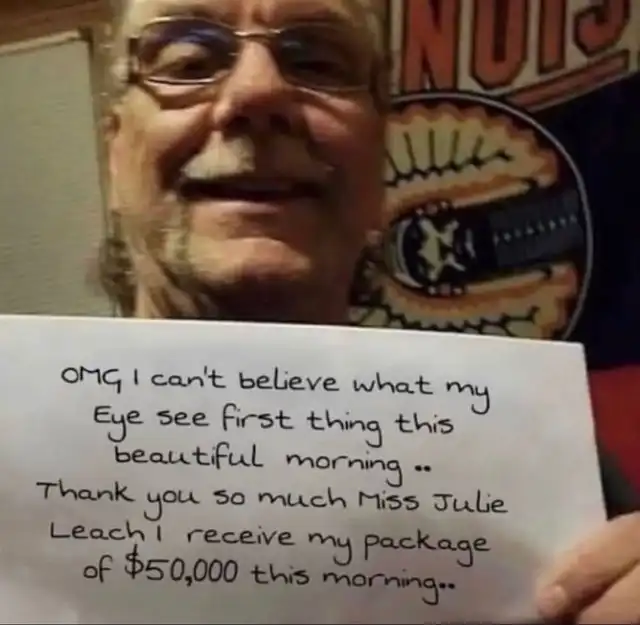 NOIS
OMG I can't believe what my
Eye see first thing this
beautiful morning ..
Thank you so much Miss Julie
Leach I receive my package
of $50,000 this morning..